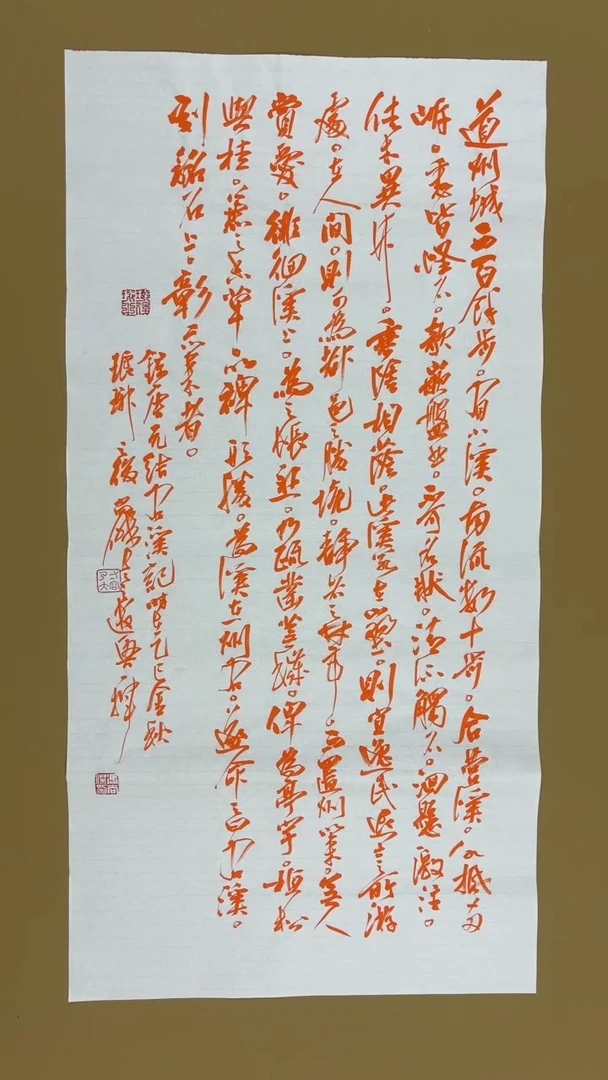 道州城西百餘步。有小溪。南流數十步。合營溪。水抵兩
岸。悉皆怪石。欹嵌盤屈。不可名狀。清流觸石。洄懸激注。
佳木異竹。垂陰相蔭。此溪若在山野。則宜逸民退士之所游
處。在人間。則可為都邑之勝境。靜者之林亭。而置州以來。無人
賞愛。徘徊溪上。為之悵然。乃疏鑿蕪穢。俾為亭宇。植松
與桂。兼之香草。以裨形勝。為溪在州右。遂命之曰右溪。
刻銘石上。彰示來者。
錄唐元結右溪記時在乙巳金秋